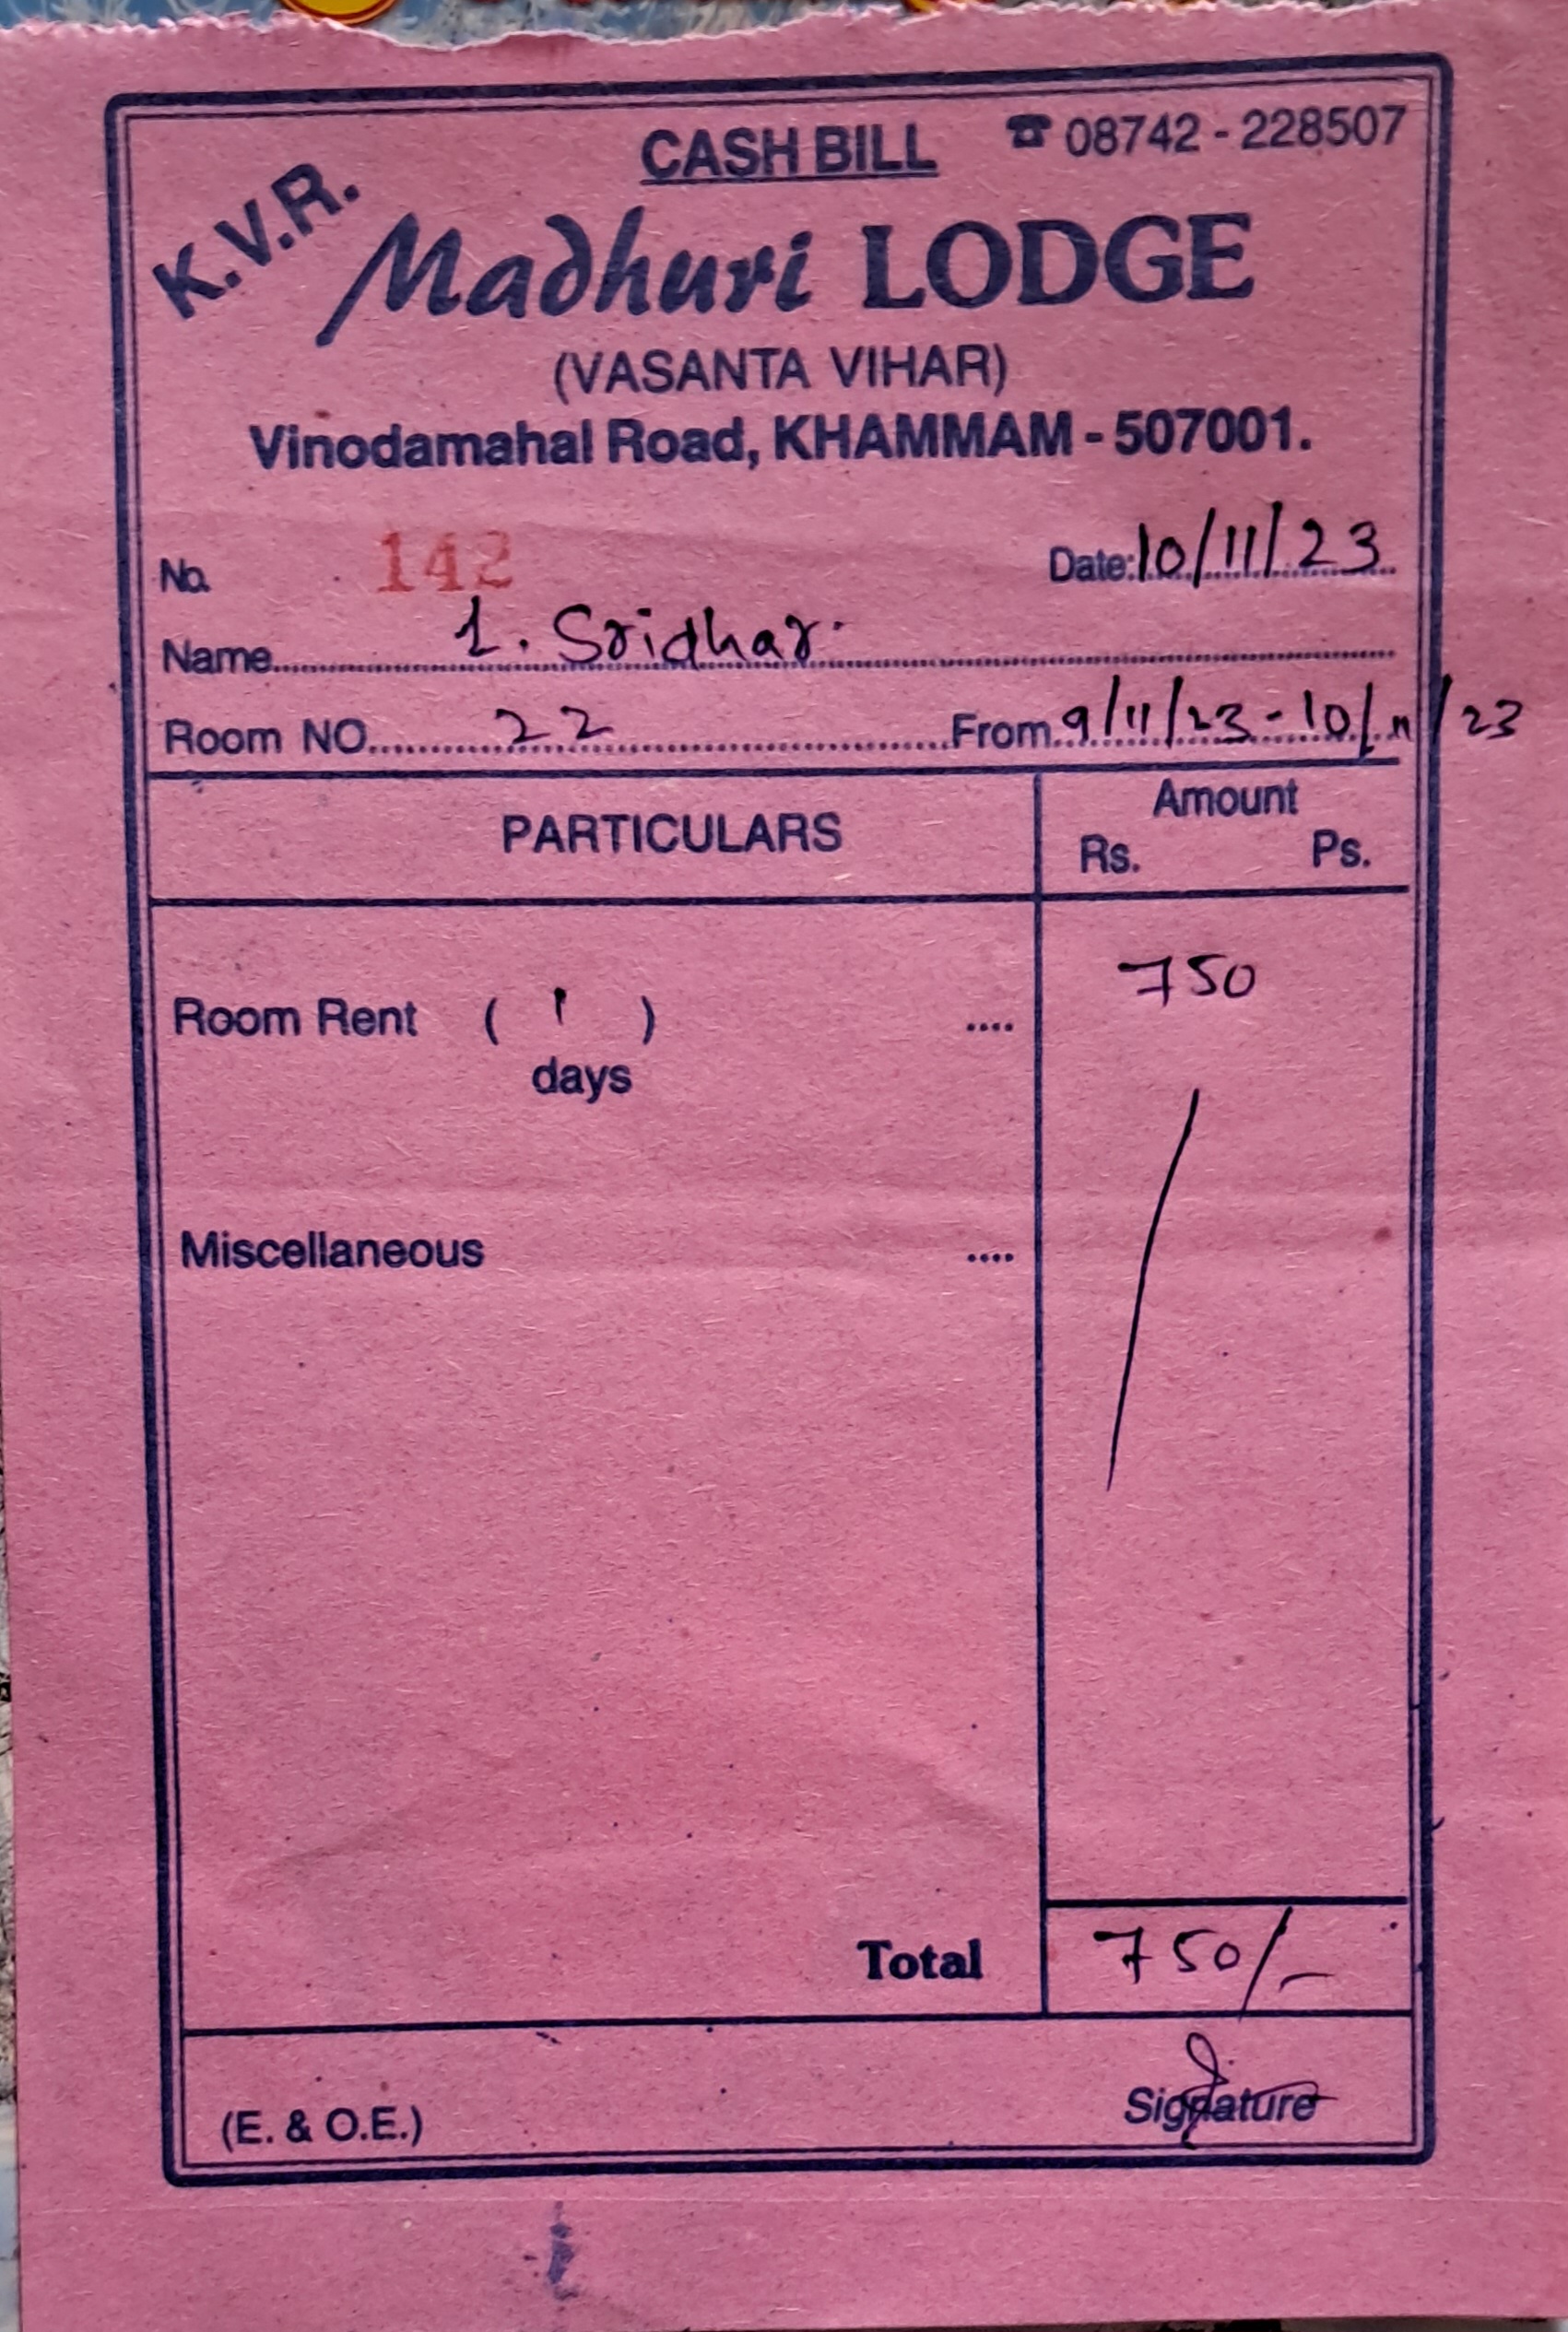 CASH BILL ☎ 08742 - 228507
K.V.R.
Madhuri LODGE
(VASANTA VIHAR)
Vinodamahal Road, KHAMMAM - 507001.
No. 142 Date: 10/11/23
Name 1. Sridhar
Room NO. 22 From 9/11/23 - 10/11/23
PARTICULARS Amount
Rs. Ps.
Room Rent ( 1 ) .... 750
days
Miscellaneous ....
Total 750/-
(E. & O.E.) Signature